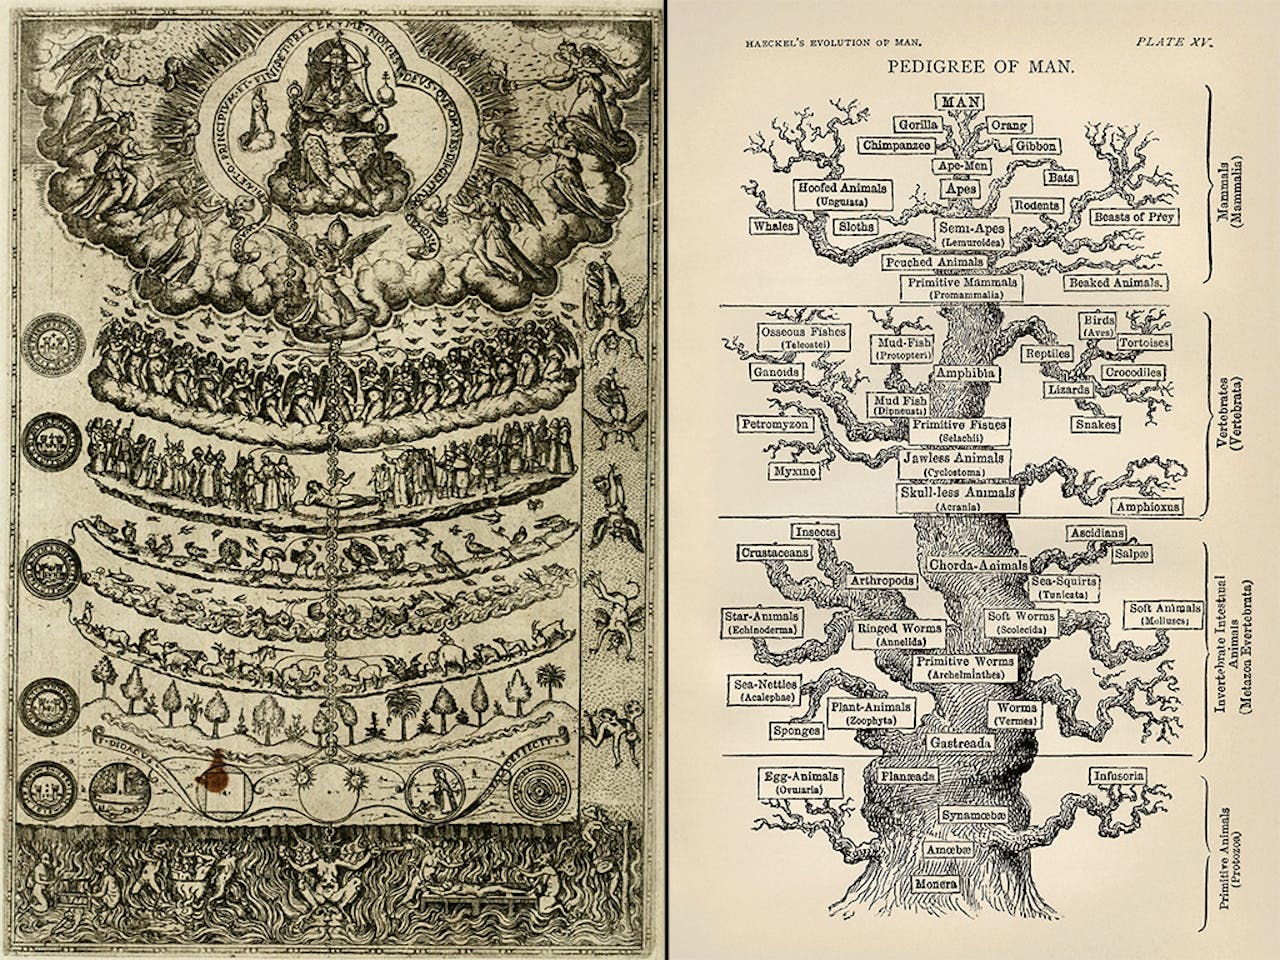 F·DIDACVS
HAECKEL'S EVOLUTION OF MAN.
PLATE XV.
PEDIGREE OF MAN.
MAN
Gorilla
Orang
Chimpanzee
Gibbon
Ape-Men
Bats
Hoofed Animals
(Ungulata)
Apes
Rodents
Beasts of Prey
Whales
Sloths
Semi-Apes
(Lemuroidea)
Pouched Animals
Primitive Mammals
(Promammalia)
Beaked Animals.
Mammals
(Mammalia)
Osseous Fishes
(Teleostei)
Mud-Fish
(Protopteri)
Birds
(Aves)
Tortoises
Reptiles
Ganoids
Amphibia
Crocodiles
Lizards
Mud Fish
(Dipneusti)
Petromyzon
Primitive Fishes
(Selachii)
Snakes
Jawless Animals
(Cyclostoma)
Myxine
Skull-less Animals
(Acrania)
Amphioxus
Vertebrates
(Vertebrata)
Insects
Ascidians
Crustaceans
Salpæ
Chorda-Animals
Arthropods
Sea-Squirts
(Tunicata)
Star-Animals
(Echinoderma)
Soft Worms
(Scolecida)
Soft Animals
(Molluscs)
Ringed Worms
(Annelida)
Primitive Worms
(Archelminthes)
Sea-Nettles
(Acalephae)
Plant-Animals
(Zoophyta)
Worms
(Vermes)
Sponges
Gastreada
Invertebrate Intestinal
Animals
(Metazoa Evertebrata)
Egg-Animals
(Ovularia)
Planæada
Infusoria
Synamœbæ
Amœbæ
Monera
Primitive Animals
(Protozoa)